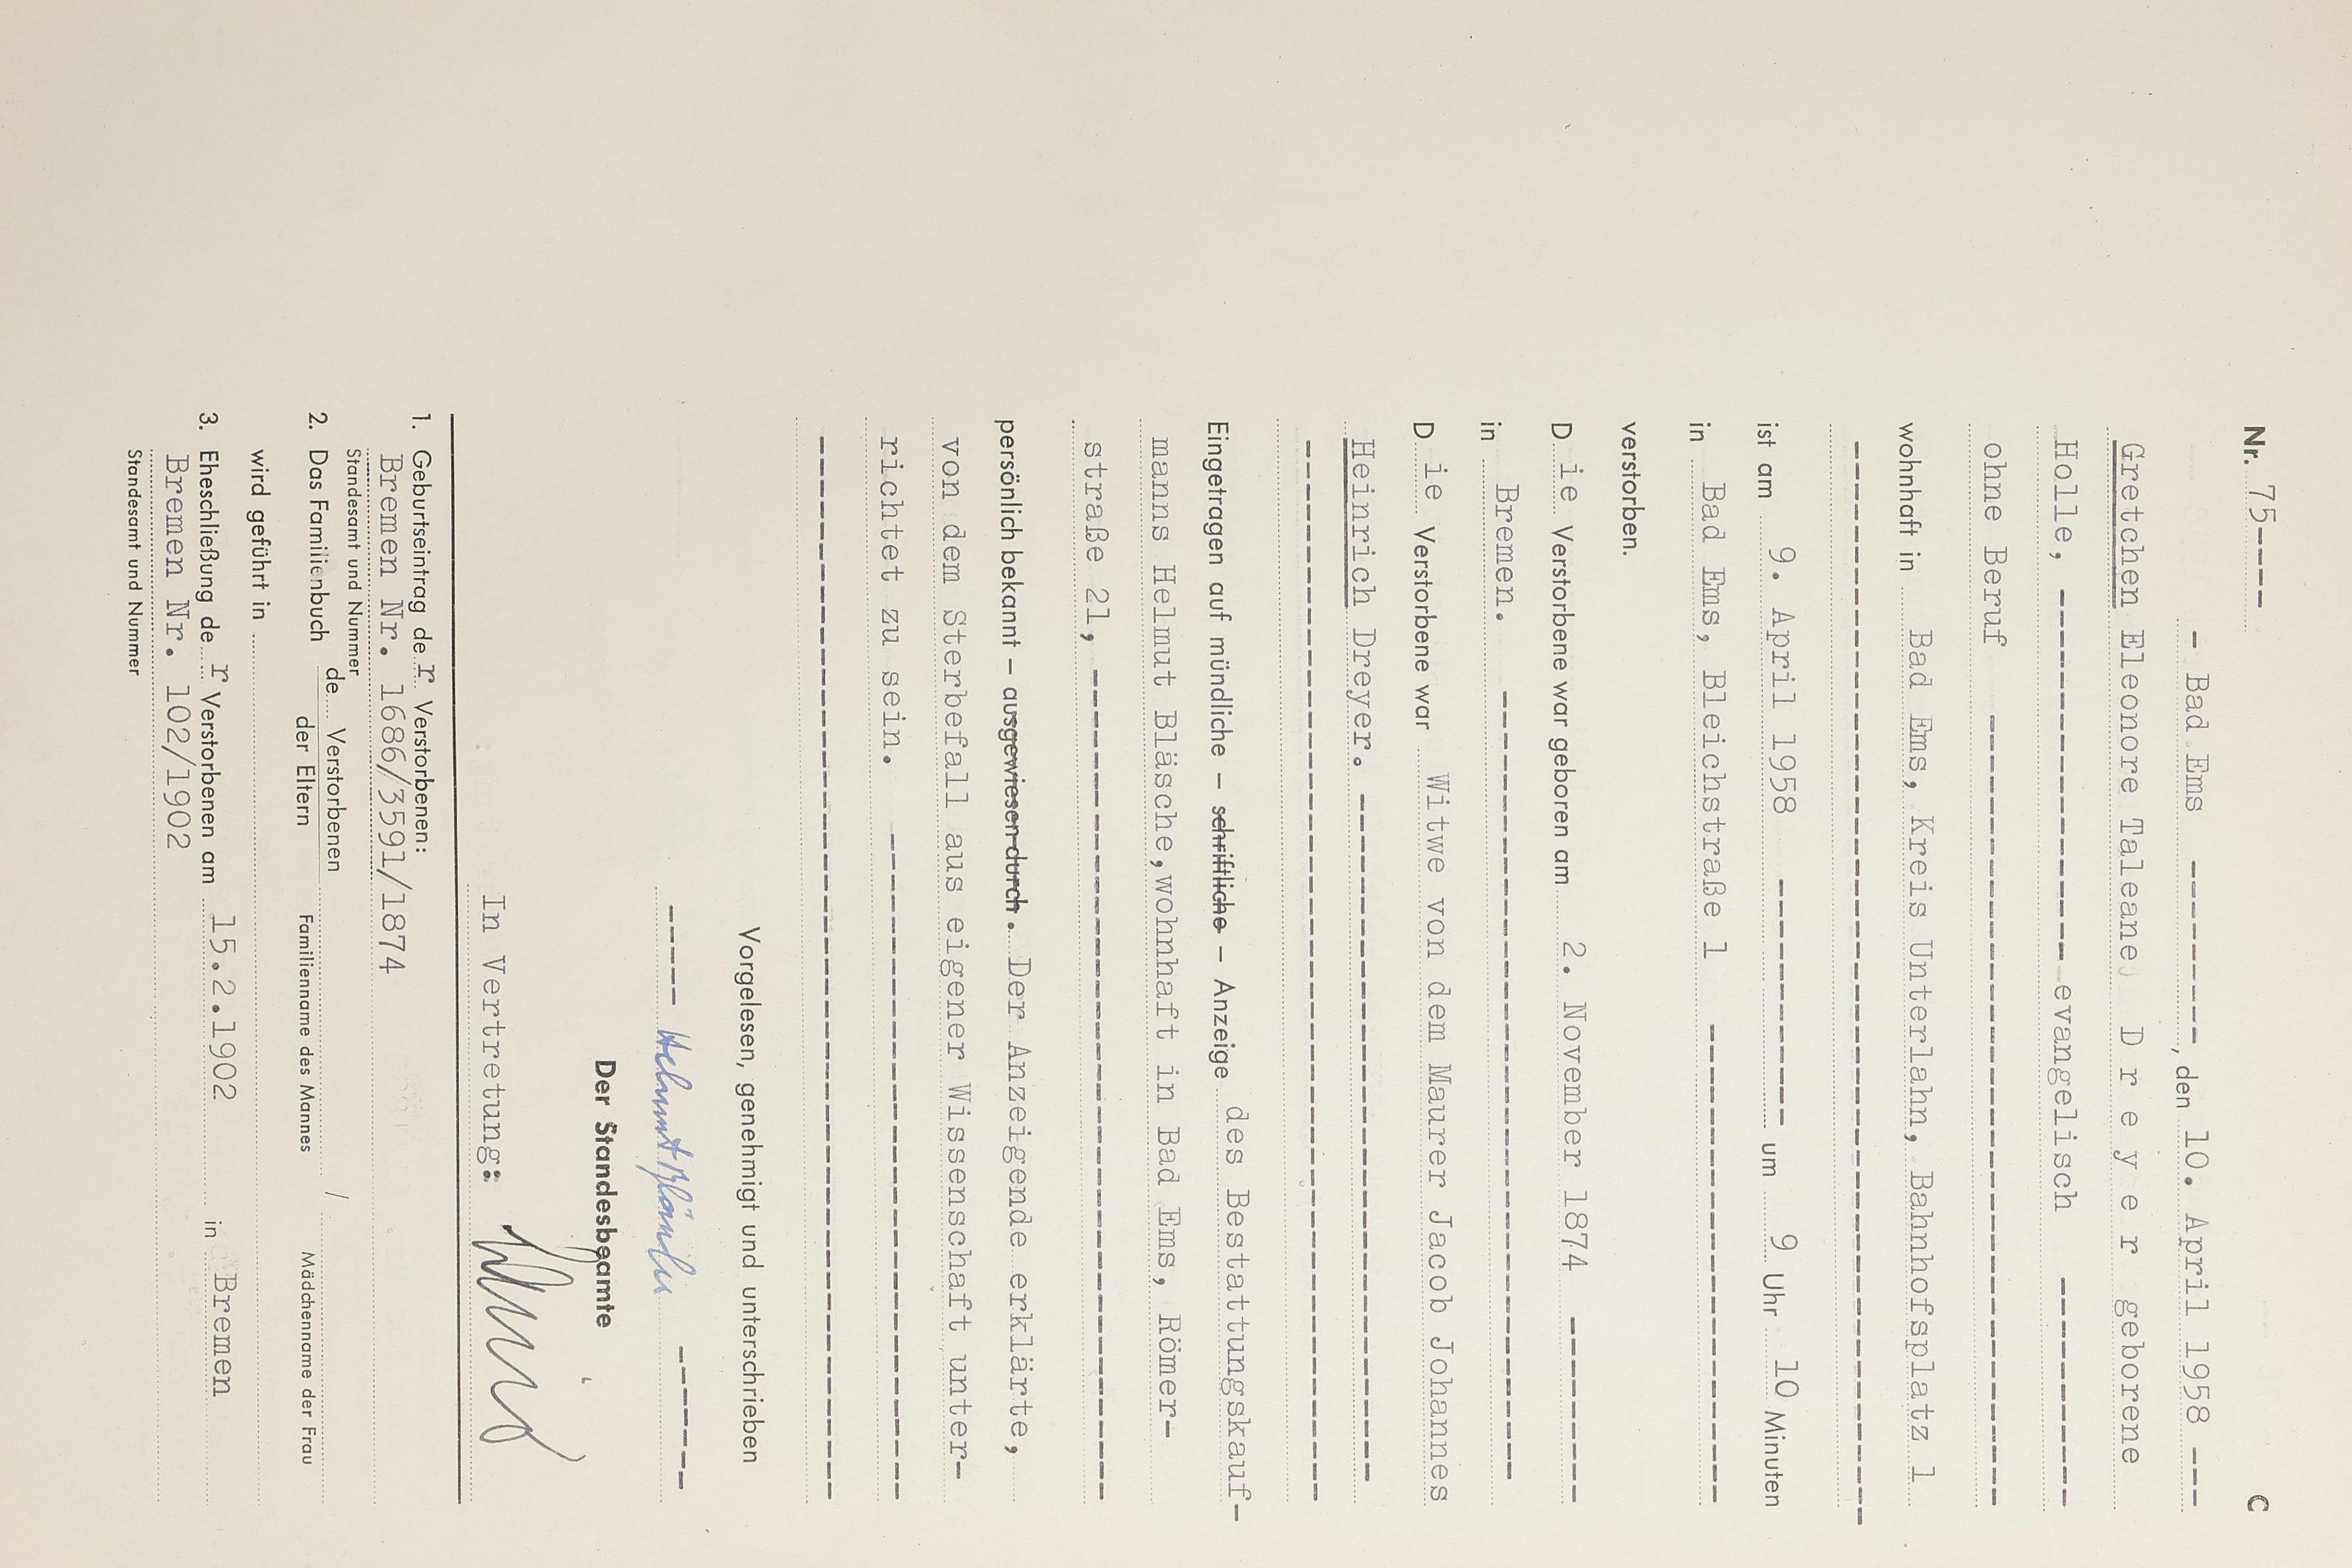 Nr. 75---- C
- Bad Ems --------, den 10. April 1958 ---
Gretchen Eleonore Taleane D r e y e r geborene
Holle, ----------------- evangelisch ---------
ohne Beruf -----------------------------------
wohnhaft in Bad Ems, Kreis Unterlahn, Bahnhofsplatz 1
--------------------------------------------------
ist am 9. April 1958 ----------- um 9 Uhr 10 Minuten
in Bad Ems, Bleichstraße 1 ---------------------
verstorben.
Die Verstorbene war geboren am 2. November 1874 --------
in Bremen. -----------------------------------
Die Verstorbene war Witwe von dem Maurer Jacob Johannes
Heinrich Dreyer. ------------------------------
--------------------------------------------------
Eingetragen auf mündliche – schriftliche – Anzeige des Bestattungskauf-
manns Helmut Bläsche,wohnhaft in Bad Ems, Römer-
straße 21, -------------------------------------
persönlich bekannt – ausgewiesen durch. Der Anzeigende erklärte,
von dem Sterbefall aus eigener Wissenschaft unter-
richtet zu sein. -----------------------------
--------------------------------------------------
Vorgelesen, genehmigt und unterschrieben
----- Helmut Bläsche -------
Der Standesbeamte
In Vertretung:
1. Geburtseintrag der Verstorbenen:
Bremen Nr. 1686/3591/1874
Standesamt und Nummer
2. Das Familienbuch de Verstorbenen /
der Eltern Familienname des Mannes Mädchenname der Frau
wird geführt in
3. Eheschließung der Verstorbenen am 15.2.1902 in Bremen
Bremen Nr. 102/1902
Standesamt und Nummer